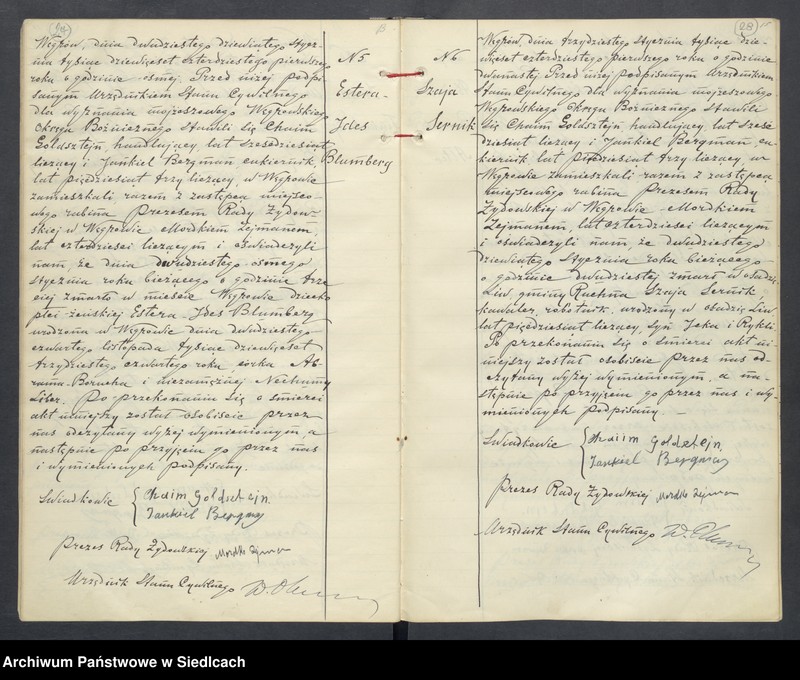 24
Węgrów, dnia dwudziestego dziewiątego stycz-
nia tysiąc dziewięćset czterdziestego pierwszego
roku o godzinie ósmej Przed niżej podpi-
sanym Urzędnikiem Stanu Cywilnego
dla wyznania mojżeszowego Węgrowskiego
Okręgu Bóżnicznego Stawili się Chaim
Goldsztejn, handlujący, lat sześćdziesiąt
liczący i Jankiel Bergman cukiernik,
lat pięćdziesiąt trzy liczący, w Węgrowie
zamieszkali razem z zastępcą miejsco-
wego rabina Prezesem Rady Żydow-
skiej w Węgrowie Mordkiem Zejmanem,
lat czterdzieści liczącym i oświadczyli
nam, że dnia dwudziestego ósmego
stycznia roku bieżącego o godzinie trze-
ciej zmarło w mieście Węgrowie dziecko
płci żeńskiej Estera Ides Blumberg
urodzona w Węgrowie dnia dwudziestego
czwartego listopada tysiąc dziewięćset
trzydziestego czwartego roku, córka Ab-
rama-Borucha i niezamężnej Nechumy
Liber. Po przekonaniu się o śmierci
akt niniejszy został osobiście przez
nas odczytany wyżej wymienionym, a
następnie po przyjęciu go przez nas
i wymienionych podpisany.
Świadkowie { Chaim Goldsztejn.
Jankiel Bergman
Prezes Rady Żydowskiej
Urzędnik Stanu Cywilnego
N 5
Estera-
Ides
Blumberg
N 6
Szaja
Sernik
28
Węgrów, dnia trzydziestego stycznia tysiąc dzie-
więćset czterdziestego pierwszego roku o godzinie
dwunastej Przed niżej podpisanym Urzędnikiem
Stanu Cywilnego dla wyznania mojżeszowego
Węgrowskiego Okręgu Bóżnicznego Stawili
się Chaim Goldsztejn, handlujący, lat sześć-
dziesiąt liczący i Jankiel Bergman, cu-
kiernik lat pięćdziesiąt trzy liczący w
Węgrowie zamieszkali razem z zastępcą
miejscowego rabina Prezesem Rady
Żydowskiej w Węgrowie Mordkiem
Zejmanem, lat czterdzieści liczącym
i oświadczyli nam, że dwudziestego
dziewiątego stycznia roku bieżącego
o godzinie dwudziestej zmarł w osadzie
Liw gminy Ruchna Szaja Sernik
kawaler, robotnik, urodzony w osadzie Liw,
lat pięćdziesiąt liczący, syn Jcka i Rykli.
Po przekonaniu się o śmierci akt ni-
niejszy został osobiście przez nas od-
czytany wyżej wymienionym, a na-
stępnie po przyjęciu go przez nas i wy-
mienionych podpisany.
Świadkowie { Chaim Goldsztejn.
Jankiel Bergman
Prezes Rady Żydowskiej
Urzędnik Stanu Cywilnego
Archiwum Państwowe w Siedlcach